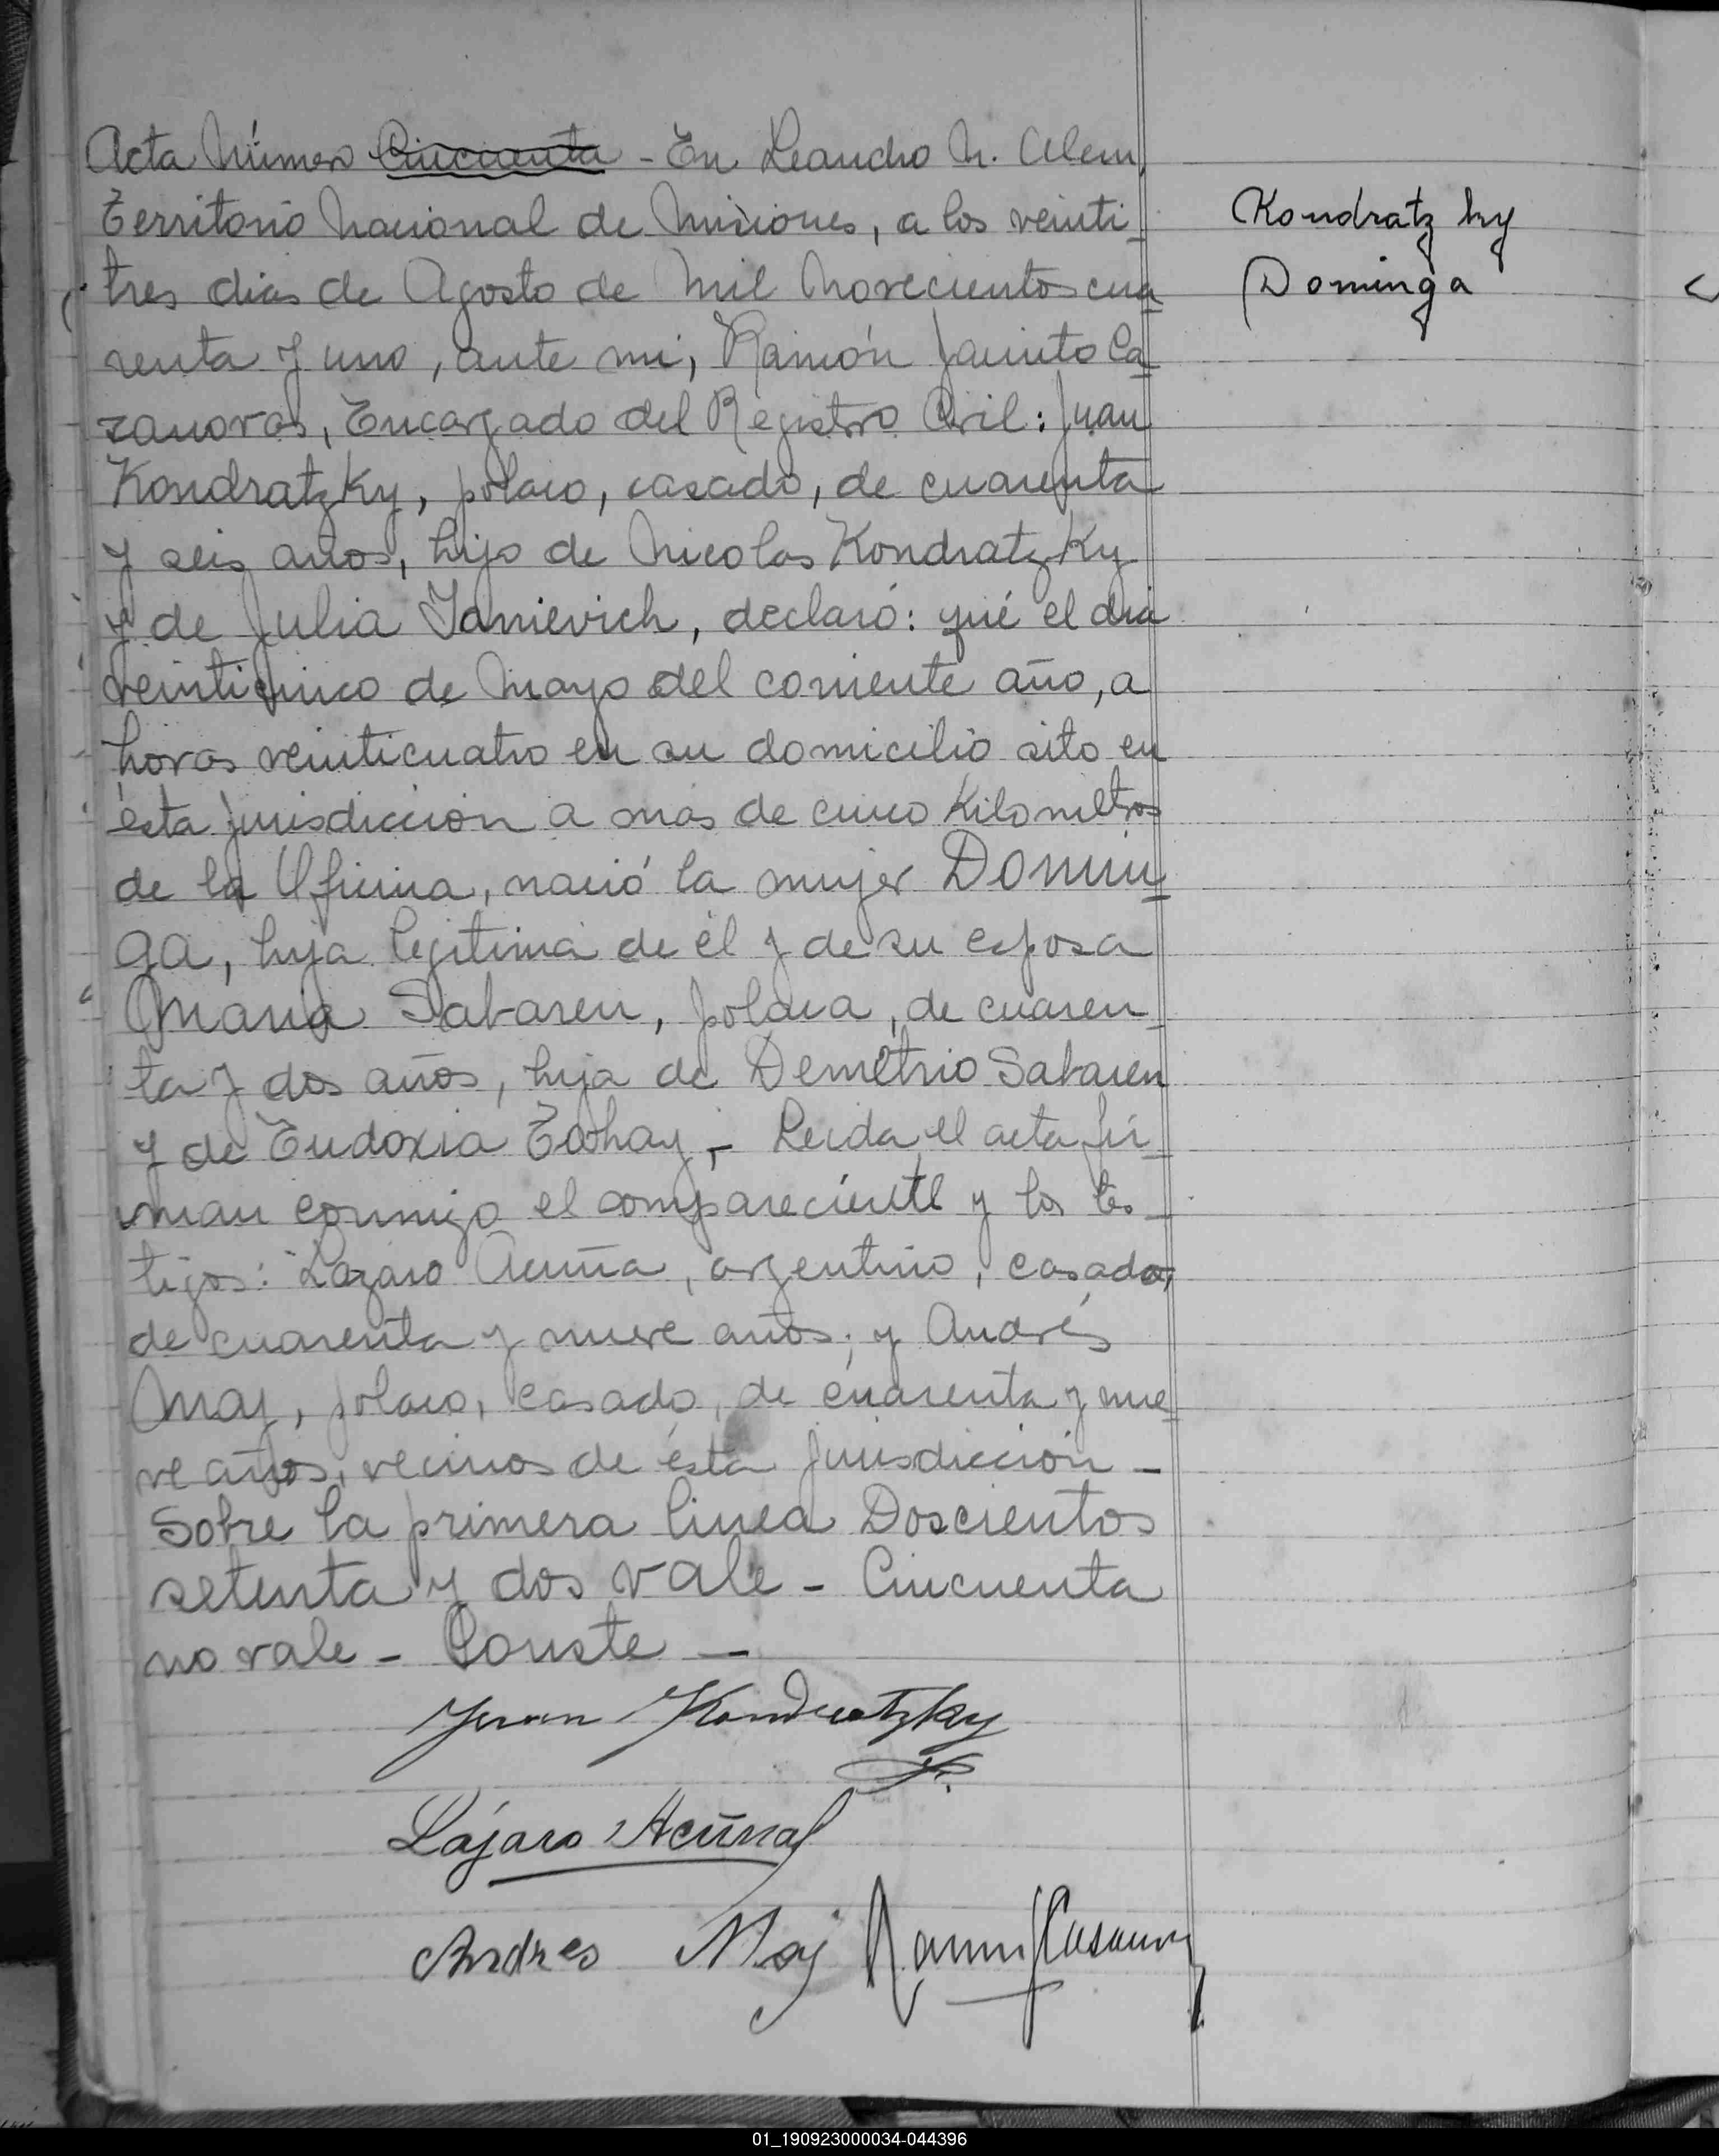 Acta Número Cincuenta - En Leandro N. Alem,
Territorio Nacional de Misiones, a los veinti-
tres dias de Agosto de Mil Novecientos cua-
renta y uno, ante mi, Ramón Jacinto Ca-
zanovas, Encargado del Registro Civil: Juan
Kondratzky, polaco, casado, de cuarenta
y seis años, hijo de Nicolas Kondratzky
y de Julia Janievich, declaró: qué el dia
veinticinco de Mayo del corriente año, a
horas veinticuatro en su domicilio sito en
ésta jurisdiccion a mas de cinco Kilometros
de la Oficina, nació la mujer Domin-
ga, hija legitima de él y de su esposa
Maria Sabaren, polaca, de cuaren-
ta y dos años, hija de Demetrio Sabaren
y de Eudoxia - Leida el acta fir-
man conmigo el compareciente y los tes-
tigos: Lazaro Acuña, argentino, casado,
de cuarenta y nueve años; y Andrés
May, polaco, casado, de cuarenta y nue-
ve años, vecinos de ésta jurisdiccion -
Sobre la primera linea Doscientos
setenta y dos vale - Cincuenta
no vale - Conste -
Juan Kondratzky
Lájaro Acuña
Andres Maj Ramon J Casanovas
Kondratz ky
Dominga
01_190923000034-044396